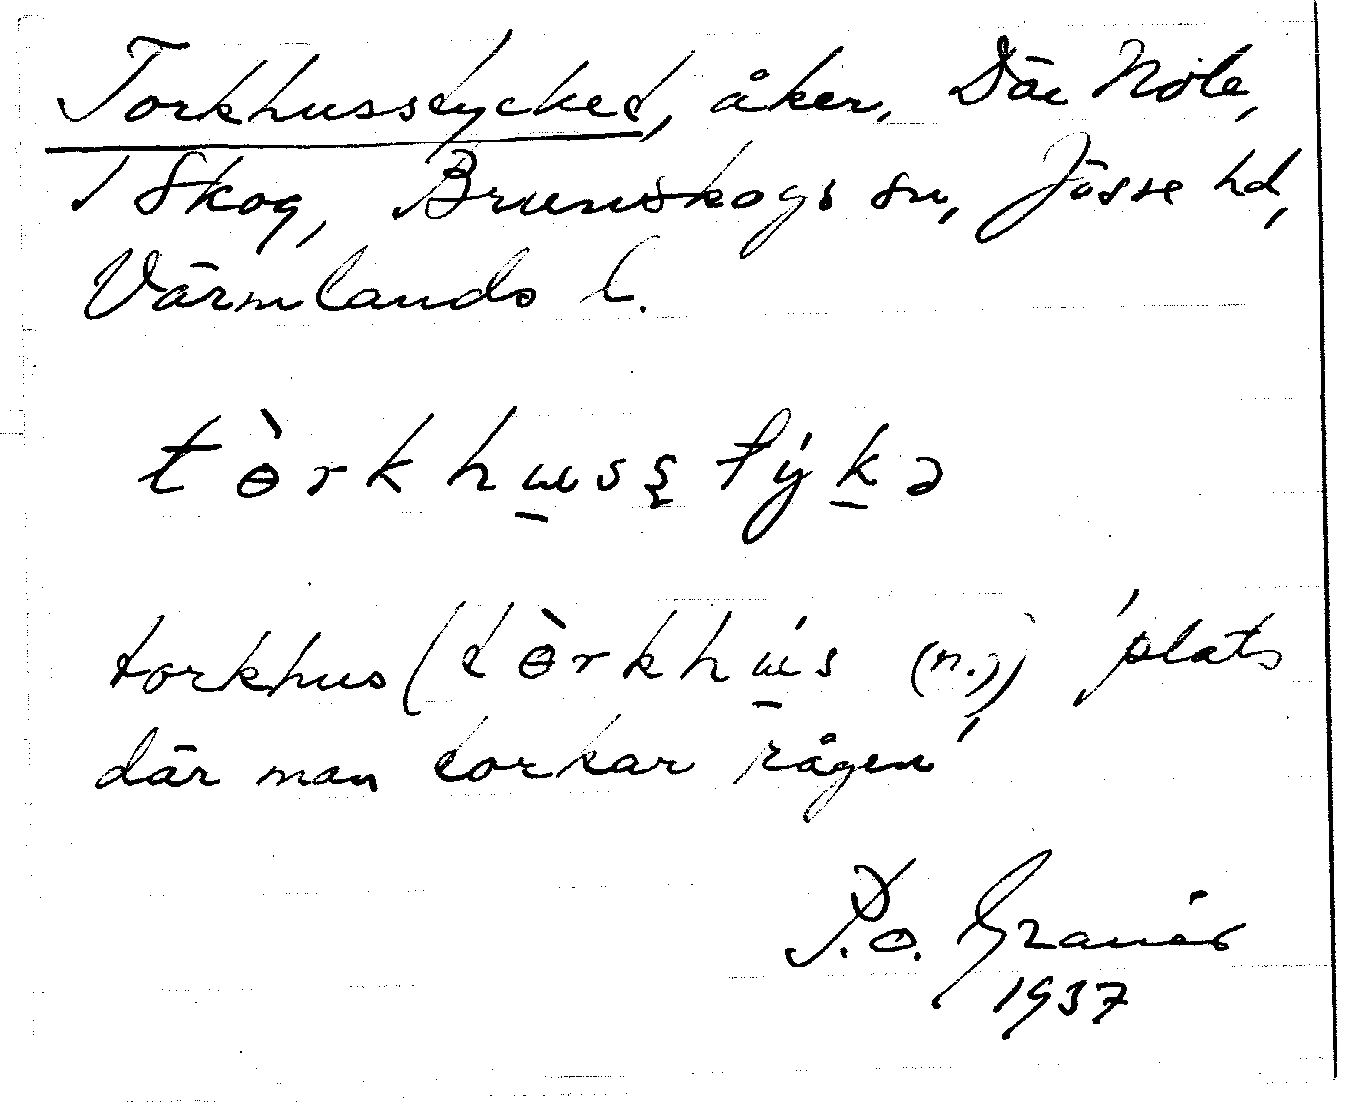 Torkhusstycket, åker. Där Nole,
i Skog, Brunskogs sn, Jösse hd,
Värmlands l.
tɵ̀rkhɯ̱sʂtýḵə
torkhus (tɵ̀rkhɯ̱́s (n.)) 'plats
där man torkar rågen'
P.O. Granér
1937